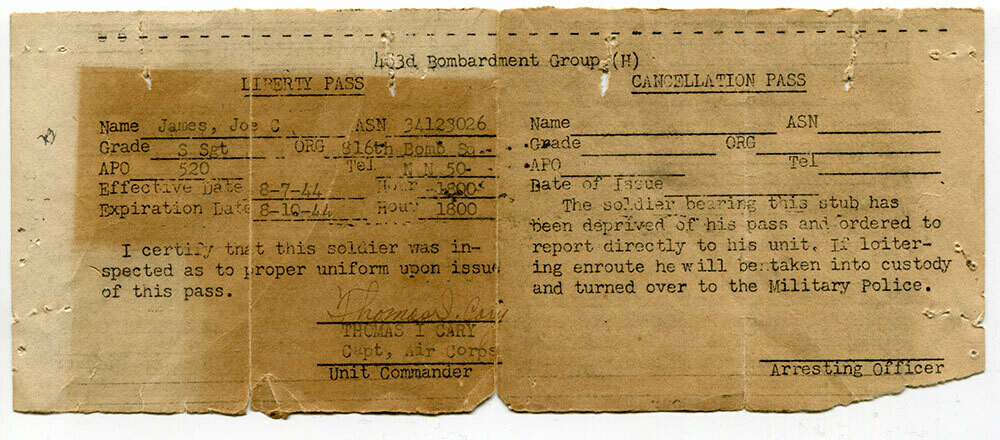 463d Bombardment Group (H)
LIBERTY PASS
Name James, Joe C ASN 34123026
Grade S Sgt ORG 816th Bomb Sq.
APO 520 Tel N N 50-
Effective Date 8-7-44 Hour 1800
Expiration Date 8-10-44 Hour 1800
I certify that this soldier was in-
spected as to proper uniform upon issue
of this pass.
Thomas I. Cary
THOMAS I CARY
Capt, Air Corps
Unit Commander
CANCELLATION PASS
Name ASN
Grade ORG
APO Tel
Date of Issue
The soldier bearing this stub has
been deprived of his pass and ordered to
report directly to his unit. If loiter-
ing enroute he will be taken into custody
and turned over to the Military Police.
Arresting Officer